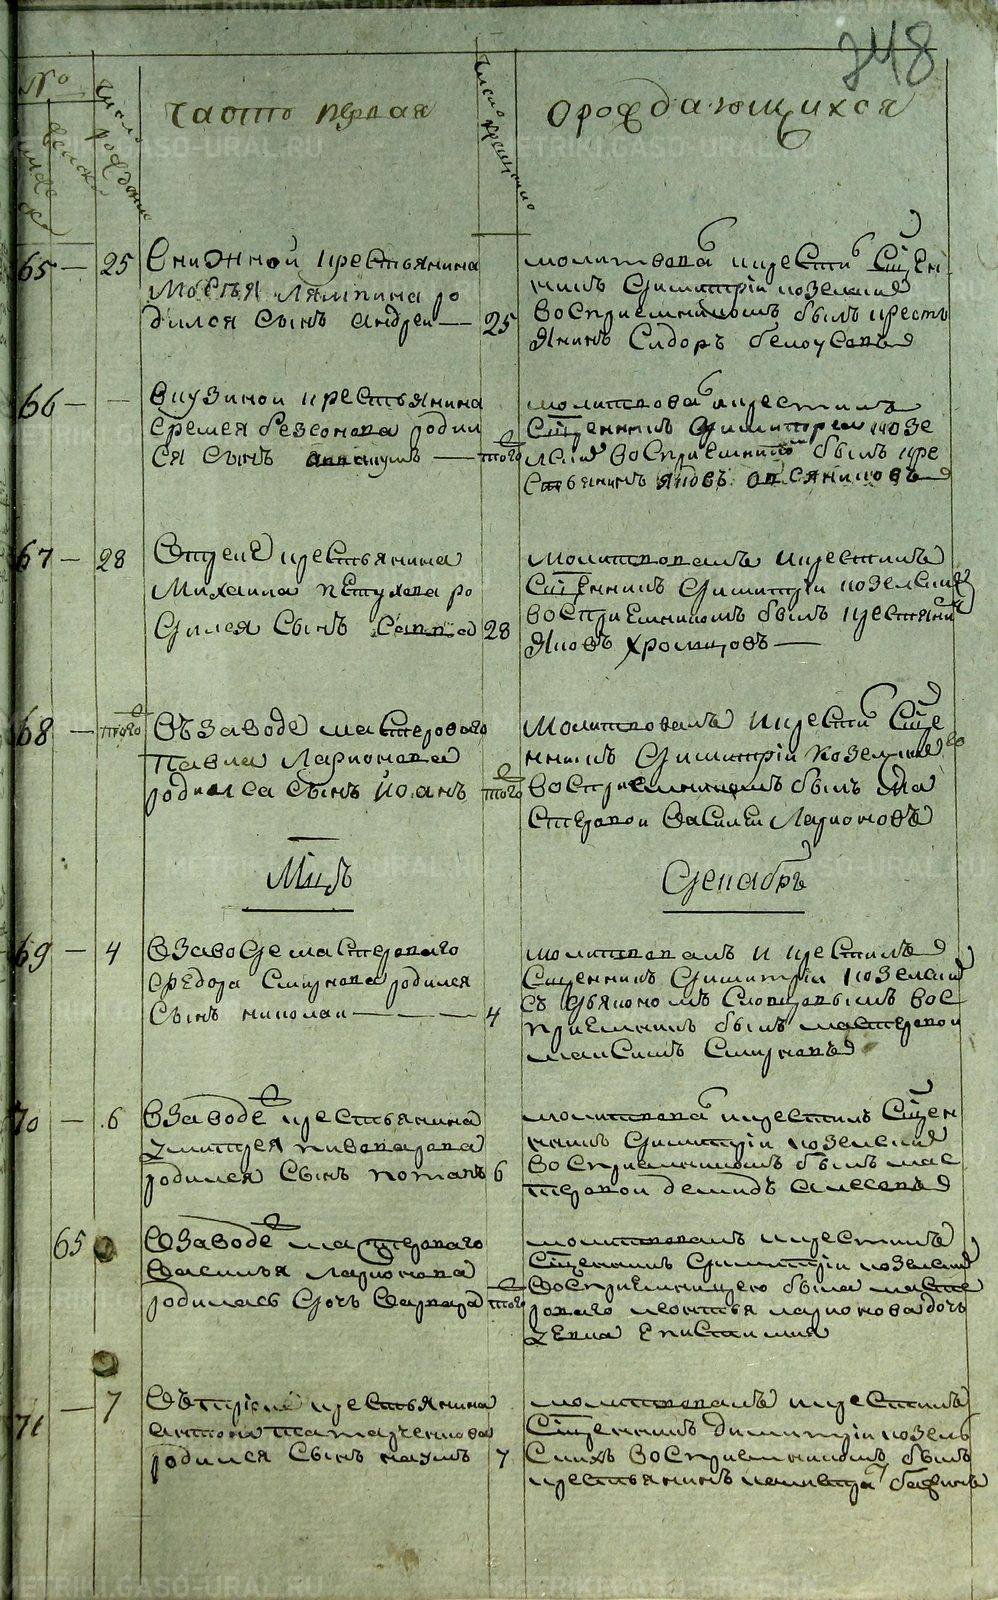 248
№
часть первая
о рождающихся
65 — 25
Внижной крестьянина
Мосея Лямпина ро
дился сынъ андреи — 25
молитвова и крести Сщен
никъ Димитрїи козелския
Восприемникомъ былъ кресть
янинъ Сидоръ белоусовъ
66 — —
Вкузинои крестьянина
Еремея безсонова роди
ся сынъ — того
молитвова крестилъ
Сщенникъ Димитреи козе
лски восприемникомъ былъ кре
стьянинъ яковъ
67 — 28
крестьянина
Михаила петухова ро
дился Сынъ Савва 28
молитвовалъ и крестилъ
Сщенникъ Димитрїи козелския
восприемникомъ былъ крестянин
Яковъ Хромцовъ —
68 — того
Въ заводе мастероваго
Павла Ларионова
родился Сынъ Иоанъ того
Молитвовалъ и крести Сще
нникъ Димитрїи козелския
восприемникомъ былъ Ма
стеровои Василеи Ларионовъ
Мцъ
Декабрь
69 — 4
В заводе мастероваго
Федора Смирнова родился
Сынъ николаи — 4
молитвовалъ и крестилъ
Сщенникъ Димитрїи козелския
съ дьякономъ Словцовымъ вос
приемникъ былъ мастеровои
максимъ Смирновъ
70 — 6
В заводе крестьянина
Дмитрея пивоварова
родился Сынъ потапъ 6
молитвова и крестилъ Сщен
никъ Димитрїи козелския
восприемникомъ былъ мас
теровои демидъ
65
В заводе мастероваго
Василья Ларионова
родилась дочь Варвара того
молитвовалъ и крестилъ
Сщенникъ Димитрїи козелския
восприемницею была масте
роваго леонтья ларионова дочь
девка Епистимия
71 — 7
крестьянина
антона татарченкова
родился Сынъ наумъ 7
молитвовалъ и крестилъ
Сщенникъ димитрїи козель
скихъ восприемникомъ былъ
крестьянинъ